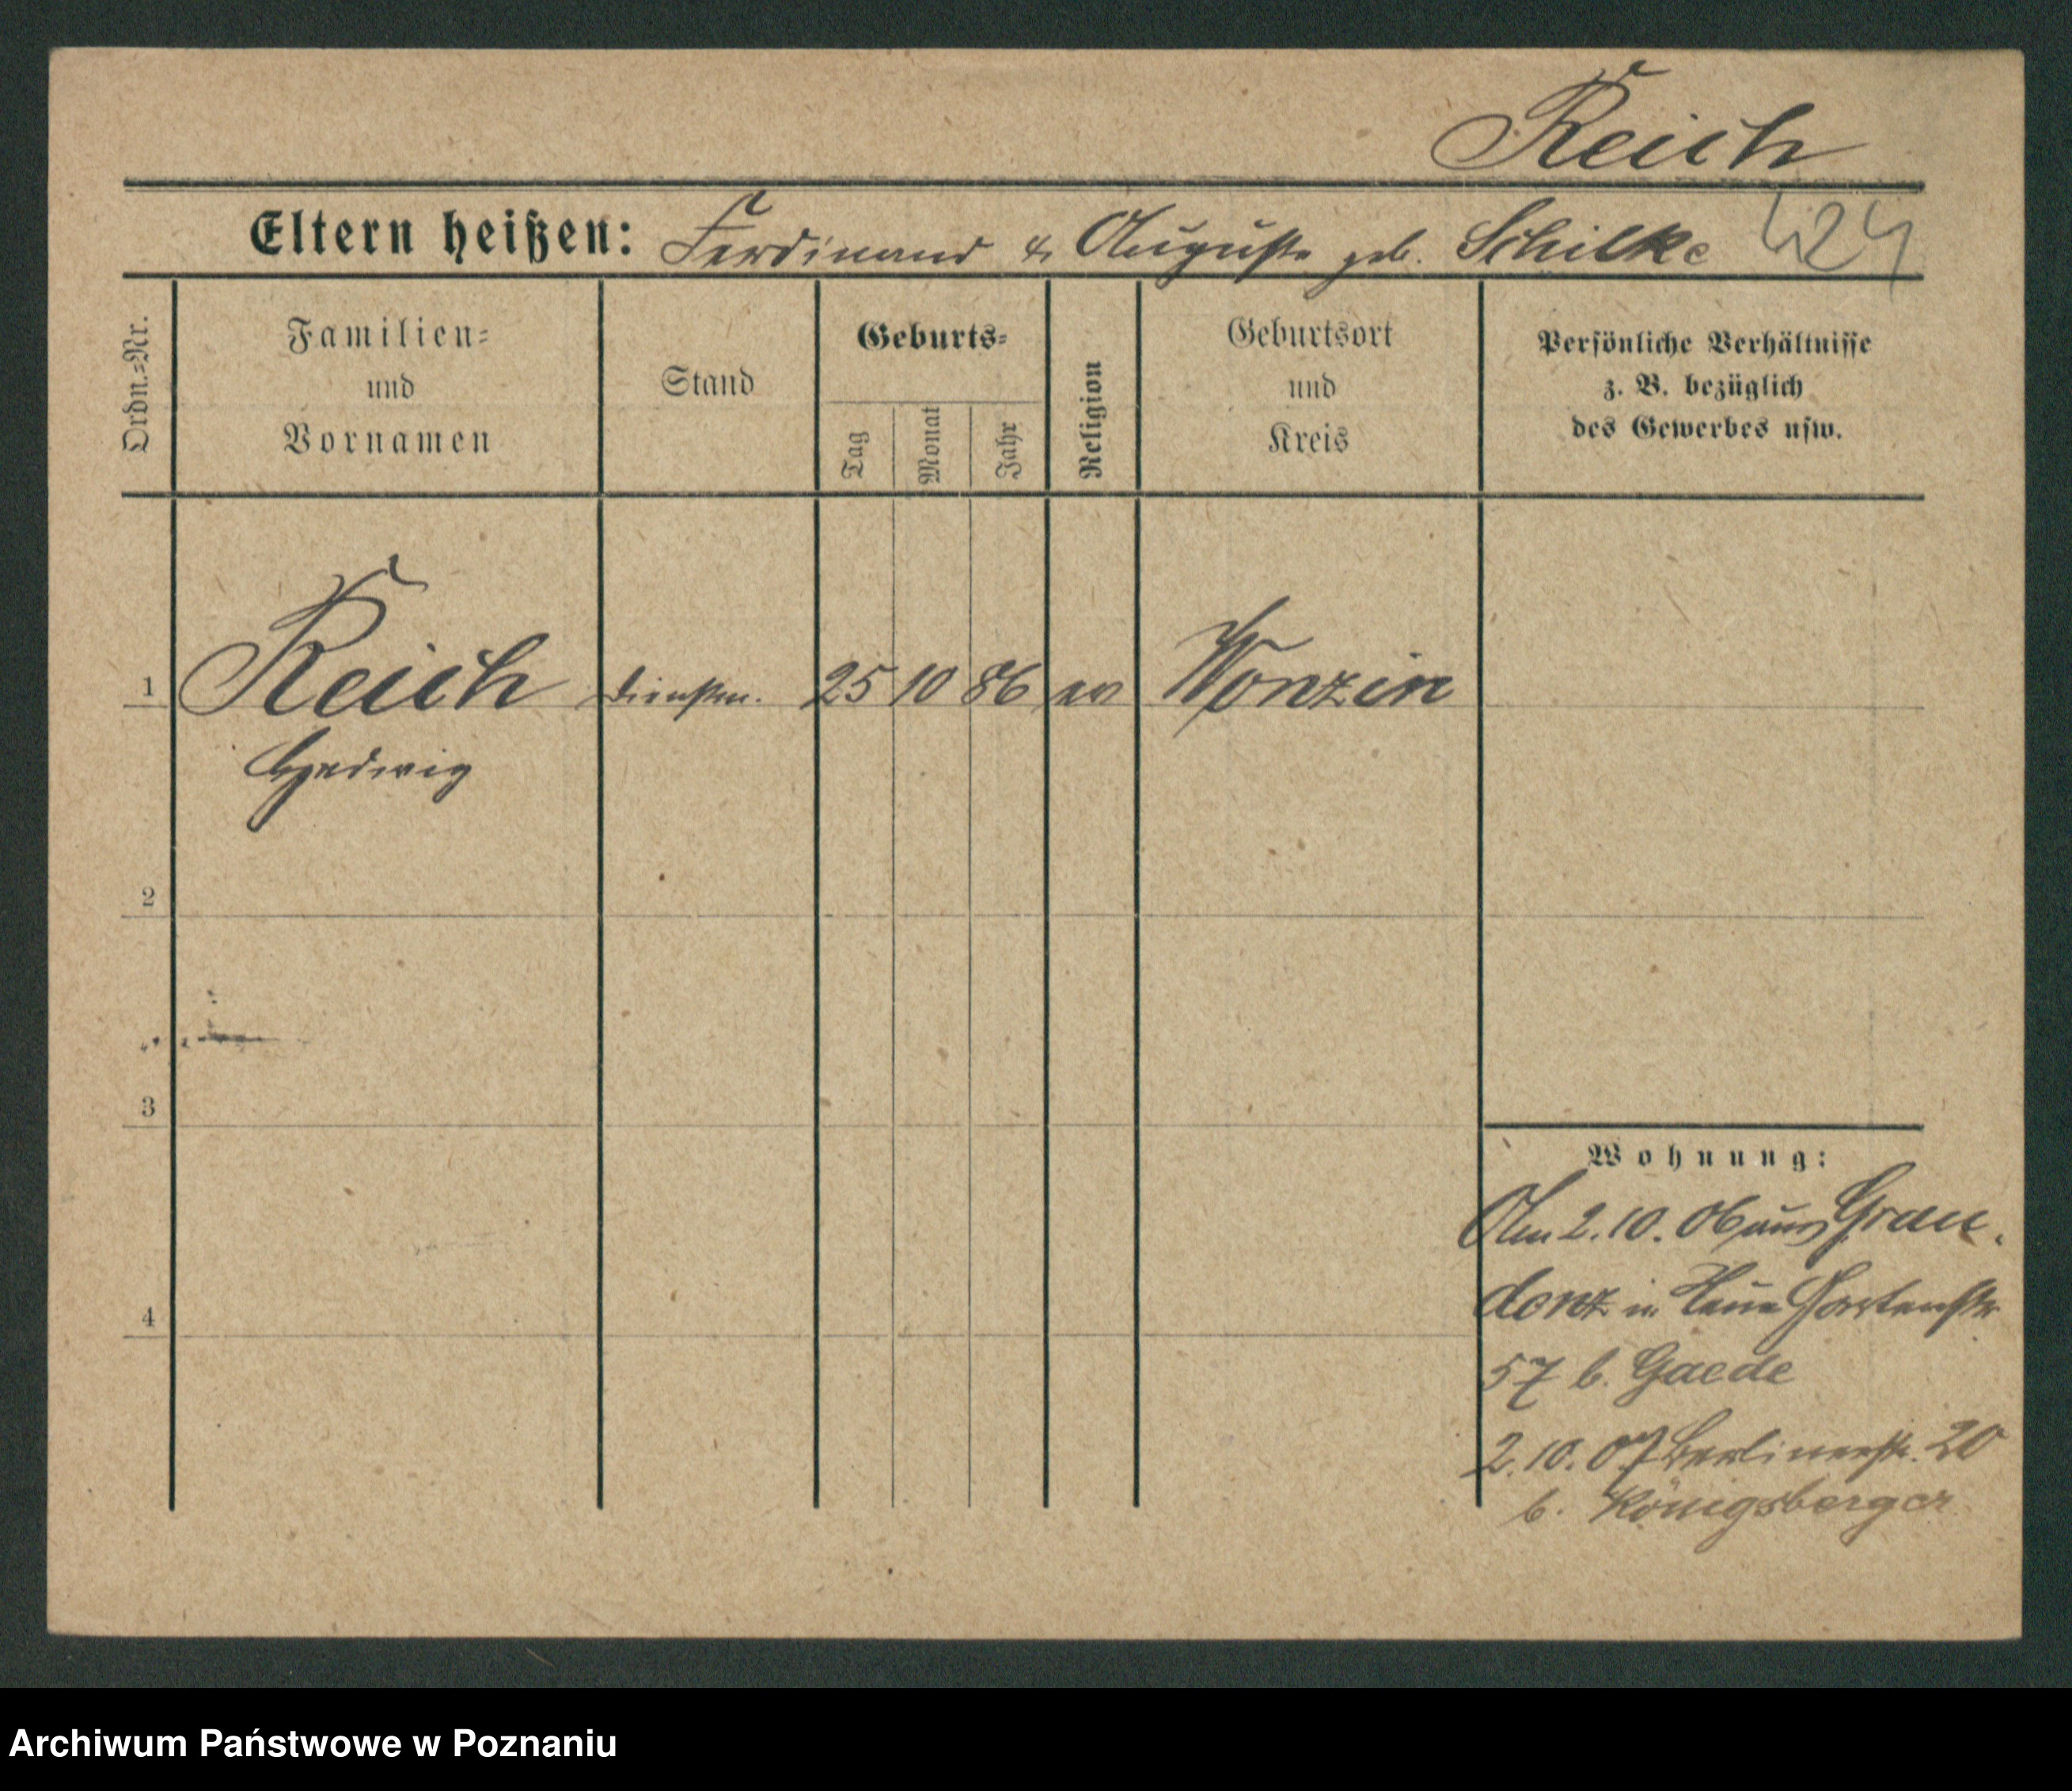 Reich
Eltern heißen: Ferdinand & Auguste geb. Schilke 424
Ordn.=Nr.
Familien=
und
Vornamen
Stand
Geburts=
Tag
Monat
Jahr
Religion
Geburtsort
und
Kreis
Persönliche Verhältnisse
z. B. bezüglich
des Gewerbes usw.
1 Reich Dienstm. 25 10 86 ev Wonzin
Hedwig
2
3
4
Wohnung:
Am 2.10.06 aus Grau-
denz in Neue Gartenstr
57 b. Gaede
2.10.07 Berlinerstr. 20
b. Königsberger
Archiwum Państwowe w Poznaniu